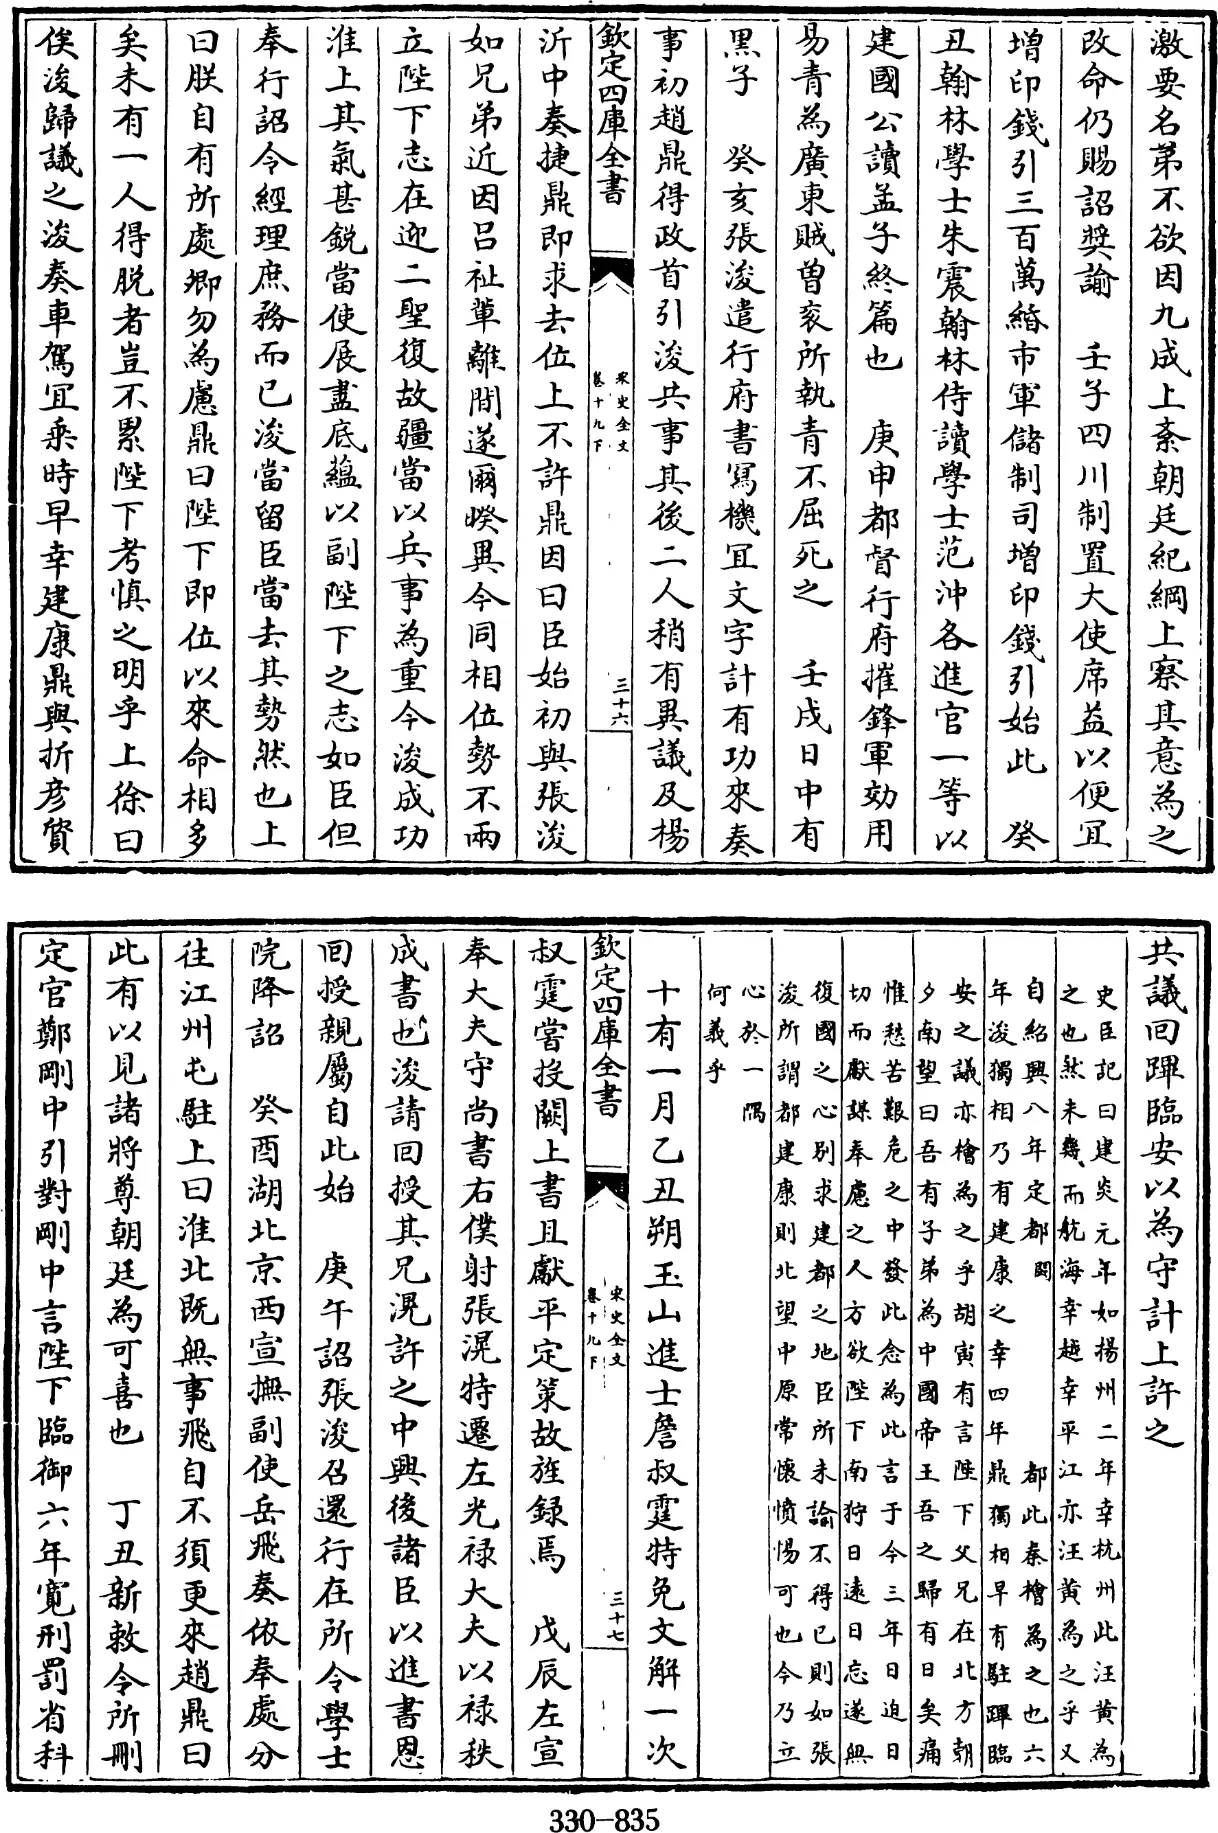 激要名第不欲因九成上紊朝廷紀綱上察其意為之
改命仍賜詔奬諭　壬子四川制置大使席益以便宜
增印錢引三百萬緡市軍儲制司增印錢引始此　癸
丑翰林學士朱震翰林侍讀學士范沖各進官一等以
建國公讀孟子終篇也　庚申都督行府摧鋒軍効用
易青為廣東賊曾衮所執青不屈死之　壬戌日中有
黑子　癸亥張浚遣行府書寫機宜文字計有功來奏
事初趙鼎得政首引浚共事其後二人稍有異議及楊
欽定四庫全書
宋史全文
卷十九下
三十六
沂中奏捷鼎即求去位上不許鼎因曰臣始初與張浚
如兄弟近因吕祉輩離間遂爾睽異今同相位勢不兩
立陛下志在迎二聖復故疆當以兵事為重今浚成功
淮上其氣甚鋭當使展盡底藴以副陛下之志如臣但
奉行詔令經理庶務而已浚當留臣當去其勢然也上
曰朕自有所處卿勿為慮鼎曰陛下即位以來命相多
矣未有一人得脱者豈不累陛下考慎之明乎上徐曰
俟浚歸議之浚奏車駕宜乘時早幸建康鼎與折彦質
共議回蹕臨安以為守計上許之
史臣記曰建炎元年如揚州二年幸杭州此汪黄為
之也然未幾而航海幸越幸平江亦汪黄為之乎又
自紹興八年定都闕　都此秦檜為之也六
年浚獨相乃有建康之幸四年鼎獨相早有駐蹕臨
安之議亦檜為之乎胡寅有言陛下父兄在北方朝
夕南望曰吾有子弟為中國帝王吾之歸有日矣痛
惟愁苦艱危之中發此念為此言于今三年日迫日
切而獻謀奉慮之人方欲陛下南狩日遠日忘遂無
復國之心别求建都之地臣所未諭不得已則如張
浚所謂都建康則北望中原常懷憤惕可也今乃立
心於一隅
何義乎
十有一月乙丑朔玉山進士詹叔霆特免文解一次
欽定四庫全書
宋史全文
卷十九下
三十七
叔霆嘗投闕上書且獻平定策故旌録焉　戊辰左宣
奉大夫守尚書右僕射張滉特遷左光禄大夫以禄秩
成書也浚請回授其兄滉許之中興後諸臣以進書恩
回授親屬自此始　庚午詔張浚召還行在所令學士
院降詔　癸酉湖北京西宣撫副使岳飛奏依奉處分
往江州屯駐上曰淮北既無事飛自不須更來趙鼎曰
此有以見諸將尊朝廷為可喜也　丁丑新敕令所刪
定官鄭剛中引對剛中言陛下臨御六年寛刑罰省科
330-835